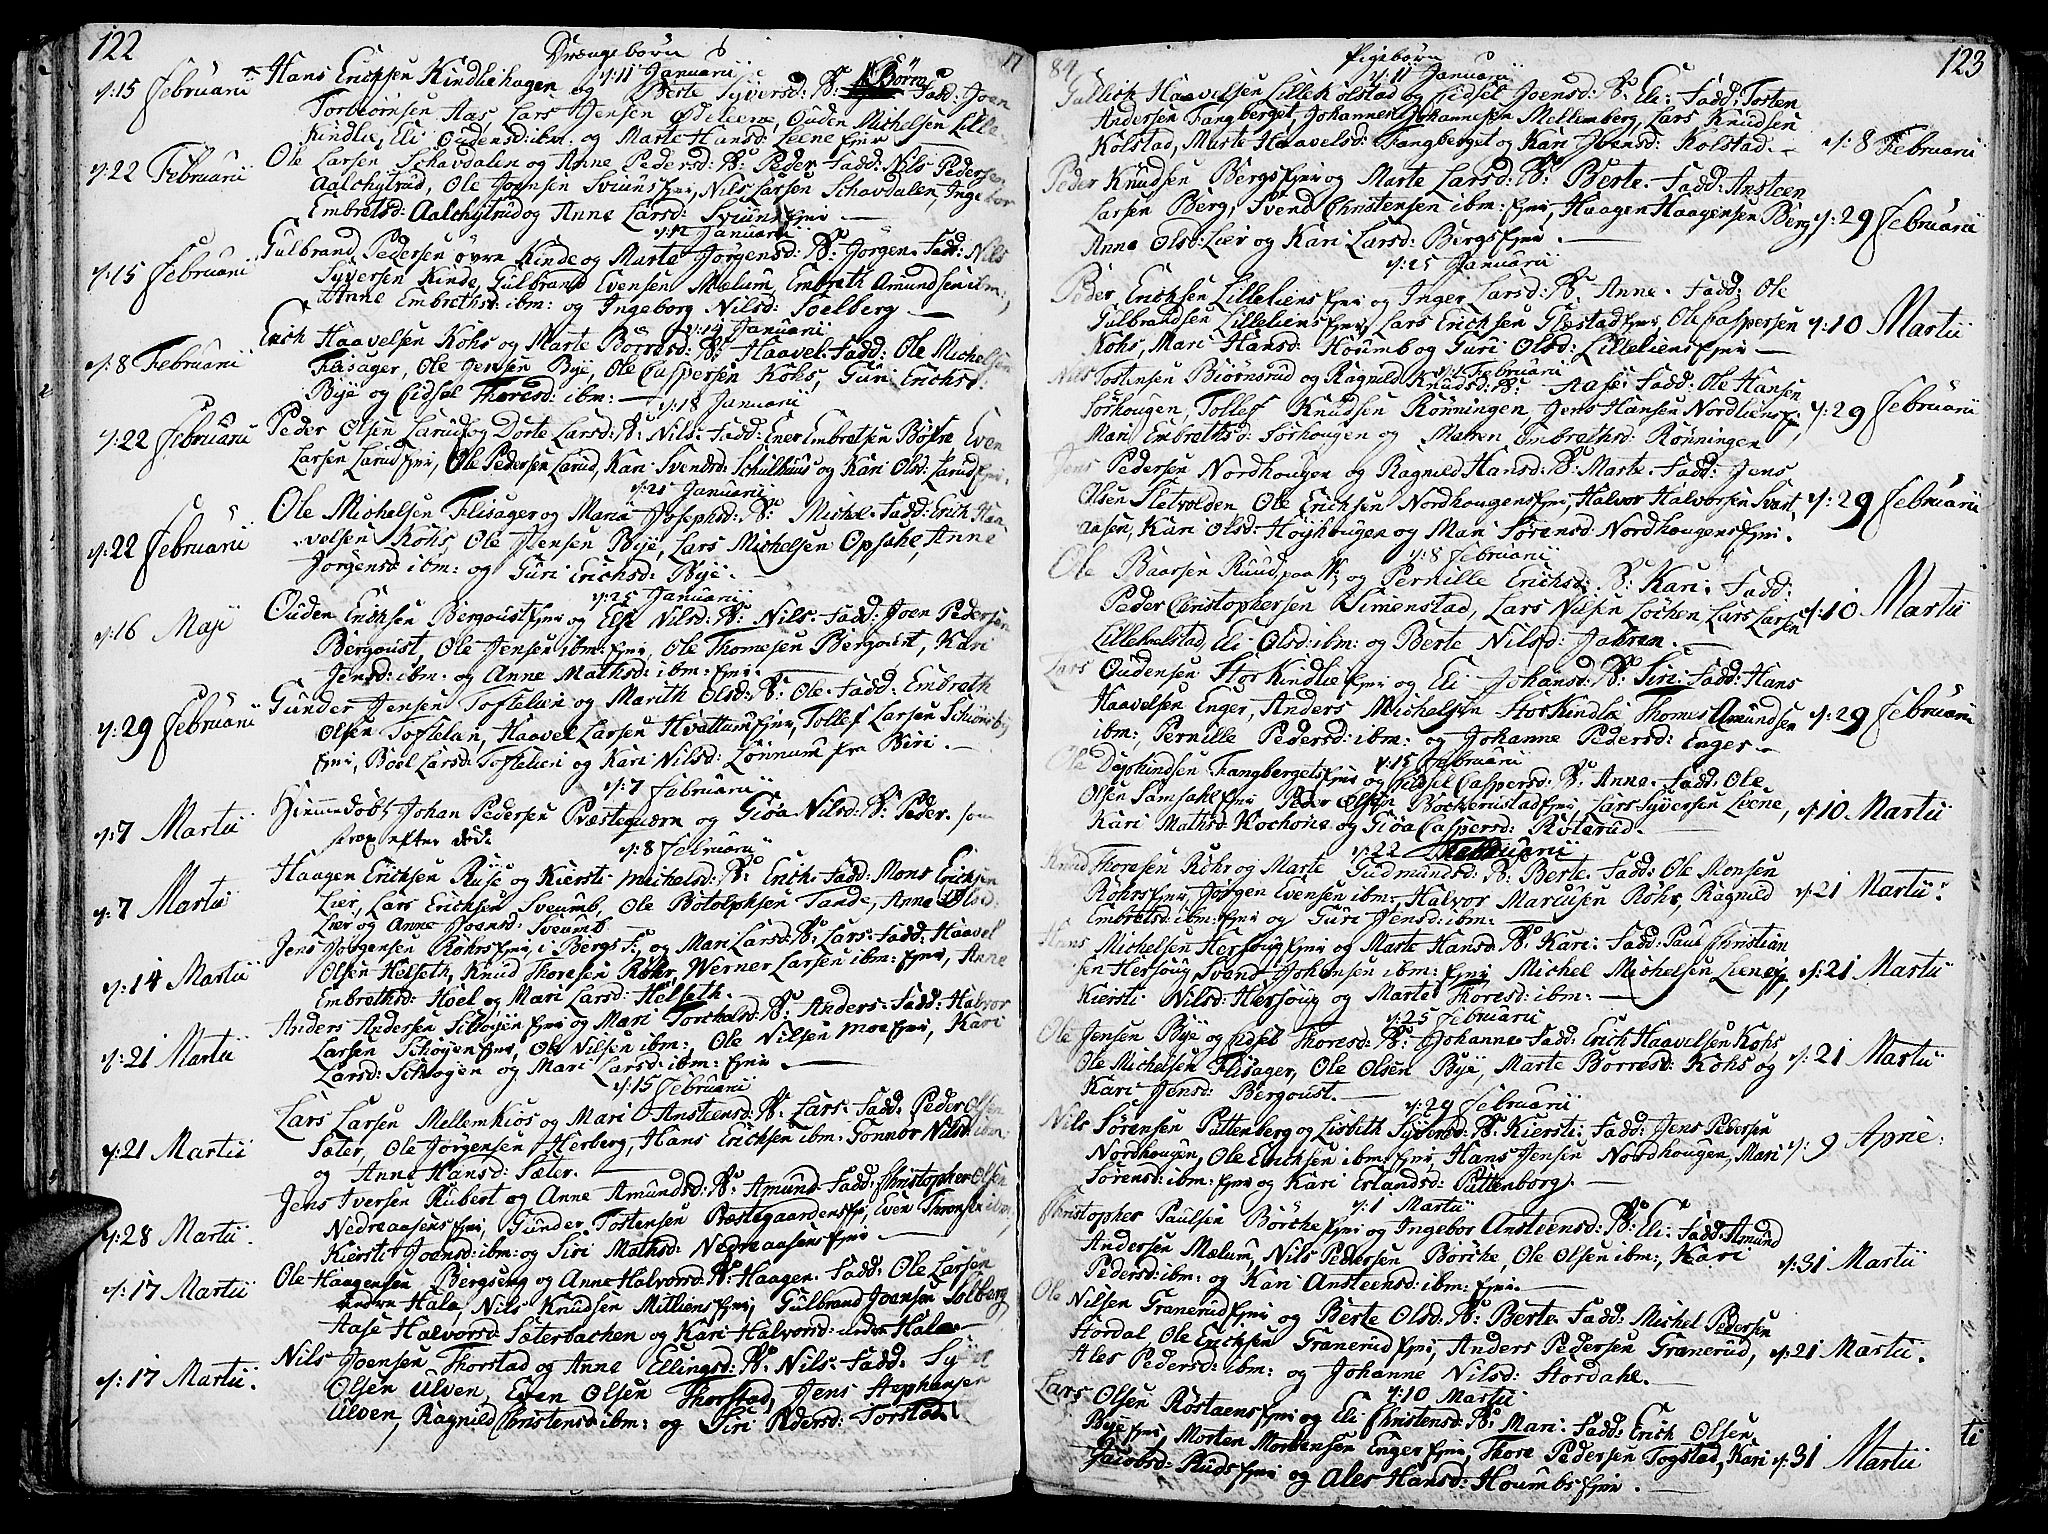 122
Drængebørn
17
d: 11 Januarii
d: 15 Februarii
Hans Erichsen Kindliehagen og Berte Syversd: B: Børn Fadd: Joen
Torbiörnsen Aas Lars Jensen Ödeleene, Ouden Michelsen Lille
Kindlie, Eli Oudensd: ibm: og Marte Hansd: Leene Ejer
d: 22 Februarii
Ole Larsen Schavdalen og Anne Pedersd: B: Peder Fadd: Nils Pedersen
Aalchytrud, Ole Joensen Sviuns Ejer, Nils Larsen Schavdalen, Ingebor
Embretsd: Aalchytrud og Anne Larsd: Sviuns Ejer
d: 12 Januarii
d: 15 Februarii
Gulbrand Pedersen övre Kinde og Marte Jörgensd: B: Jörgen. Fadd: Nils
Syversen Kinde, Gulbrand Evensen Mælum, Embreth Amundsen ibm:,
Anne Embrethsd: ibm: og Ingeborg Nilsd: Soelberg
d: 14 Januarii
d: 8 Februarii
Erich Haavelsen Kohs og Marte Börresd: B: Haavel. Fadd: Ole Michelsen
Flisager, Ole Jensen Bye, Ole Caspersen Kohs, Guri Erichsd:
Bye og Eidsel Thoresd: ibm:
d: 18 Januarii
d: 22 Februarii
Peder Olsen Larud og Dorte Larsd: B: Nils. Fadd: Ener Embretsen Böfre Even
Larsen Larud Ejer, Ole Pedersen Larud, Kari Svendsd: Schulhuus og Kari Olsd: Larud Ejer.
d: 21 Januarii
d: 22 Februarii
Ole Michelsen Flisager og Maria Josephsd: B: Michel. Fadd: Erich Haa
velsen Kohs, Ole Jensen Bye, Lars Michelsen Opsahl, Anne
Jörgensd: ibm: og Guri Erichsd: Bye.
d: 25 Januarii
d: 16 Maji
Ouden Erichsen Bergqust Ejer og Else Nilsd: B: Nils. Fadd: Joen Pedersen
Bergqust, Ole Jensen ibm: Ejer, Ole Thomesen Bergqust, Kari
Jensd: ibm: og Anne Mathsd: ibm: Ejer.
d: 29 Februarii
Gunder Jensen Toftelien og Marith Olsd: B: Ole. Fadd: Embreth
Olsen Toftelien, Haavel Larsen Hvattum Ejer, Tollef Larsen Schiönsby
Ejer, Boel Larsd: Toftelien og Kari Nilsd: Lönnum fra Biri.
d: 7 Februarii
d: 7 Martii
Hiemmedöbt Johan Pedersen Præsteqværn og Giöa Nilsd: B: Peder. som
strax efter döde
d: 8 Februarii
d: 7 Martii
Haagen Erichsen Ruse og Kiersti Michelsd: B: Erich. Fadd: Mons Erichsen
Lier, Lars Erichsen Sveumb, Ole Botolphsen Tande, Anne Olsd:
Lier og Anne Joensd: Sveumb
d: 14 Martii
Jens Jörgensen Röhrs Ejer i Bergs F: og Mari Larsd: B: Lars. Fadd: Haavel
Olsen Helseth, Knud Thoresen Röhr, Werner Larsen ibm: Ejer, Anne
Embrethsd: Hoel og Mari Larsd: Helseth.
d: 21 Martii
Anders Andersen Schöyen Ejer og Mari Torchelsd: B: Anders. Fadd: Halvor
Larsen Schöyen Ejer, Ole Nilsen ibm:, Ole Nilsen Moe Ejer, Kari
Larsd: Schöyen og Mari Larsd: ibm: Ejer.
d: 15 Februarii
d: 21 Martii
Lars Larsen Mellemkiös og Mari Ansteensd: B: Lars. Fadd: Peder Olsen
Sæter, Ole Jörgensen Herberg, Hans Erichsen ibm: Gonnor Nilsd: ibm:
og Anne Hansd: Sæter.
d: 28 Martii.
Jens Iversen Rubert og Anne Amundsd: B: Amund. Fadd: Christopher Olsen
Nedreaasens Ejer, Gunder Tostensen Præstegaardens Ejer, Even Thronsen ibm,
Kiersti Joensd: ibm: og Siri Mathsd: Nedreaasens Ejer
d: 17 Martii
Ole Haagensen Bergseng og Anne Halvorsd: B: Haagen. Fadd: Ole Larsen
undre Hala, Nils Knudsen Mitliens Ejer, Gulbrand Joensen Solberg,
Aase Halvorsd: Sæterbachen og Kari Halvorsd: undre Hala.
d: 17 Martii.
Nils Joensen Thorstad og Anne Ellingsd: B: Nils. Fadd:
Olsen Ulven, Even Olsen Thorstad, Jens Stephensen
Ulven, Ragnild Christensd: ibm: og Siri Pedersd: Torstad.
84
Pigebørn
123
d: 11 Januarii
Gullich Haavelsen Lille Kolstad og Eidsel Joensd: B: Eli. Fadd: Tosten
Andersen Fangberget, Johannes Johannesen Mellemberg, Lars Knudsen
Kolstad, Marte Haavelsd: Fangberget og Kari Joensd: Kolstad.
d: 8 Februarii
Peder Knudsen Bergs Ejer og Marte Larsd: B: Berte. Fadd: Ansteen
Larsen Berg, Svend Christensen ibm: Ejer, Haagen Haagensen Berg
Anne Olsd: Lier og Kari Larsd: Bergs Ejer.
d: 29 Februarii
d: 25 Januarii
Peder Erichsen Lilleliens Ejer og Inger Larsd: B: Anne. Fadd: Ole
Gulbrandsen Lilleliens Ejer, Lars Erichsen Glæstad Ejer, Ole Caspersen
Kohs, Mari Hansd: Houmb og Guri Olsd: Lilleliens Ejer
d: 10 Martii
d: 1 Februarii
Nils Tostensen Biörnsrud og Ragnild Knudsd: B: Aase. Fadd: Ole Hansen
Sörhougen, Tollef Knudsen Rönningen, Jens Hansen Nordliens Ej,
Mari Embrethsd: Sörhougen og Maren Embrethsd: Rönningen
d: 29 Februarii
Jens Pedersen Nordhougen og Ragnild Hansd: B: Marte. Fadd: Jens
Olsen Sletvolden, Ole Erichsen Nordhougens Ejer, Halvor Halvorsen Svart
aasen, Kari Olsd: Höyhougen og Mari Sörensd: Nordhougens Ejer.
d: 29 Februarii
d: 8 Februarii
Ole Baarsen Ruud paa N: og Pernille Erichsd: B: Kari. Fadd:
Peder Christophersen Simenstad, Lars Nilsen Lochen, Lars Larsen
Lillehalstad, Eli Olsd: ibm: og Berte Nilsd: Jabram.
d: 10 Martii
Lars Oudensen Stor Kindlie Ejer og Eli Johansd: B: Siri. Fadd: Hans
Haavelsen Enger, Anders Michelsen Storkindli Thomes Amundsen
ibm:, Pernille Pedersd: ibm: og Johanne Pedersd: Enger.
d: 29 Februarii
d: 15 Februarii
Ole Dophindsen Fangbergets Ejer og Eidsel Caspersd: B: Anne. Fadd: Ole
Olsen Samsahl Ejer, Peder Olsen Bockerustad Ejer, Lars Syversen Leene,
Kari Mathsd: Kochorie og Giöa Caspersd: Röterud.
d: 10 Martii
d: 22 Februarii
Knud Thoresen Röhr og Marte Gudmundsd: B: Berte. Fadd: Ole Monsen
Röhrs Ejer, Jörgen Evensen ibm:, Halvor Marcusen Röhr, Ragnild
Embretsd: ibm: Ejer og Guri Jensd: ibm:
d: 21 Martii
Hans Michelsen Hersoug Ejer og Marte Hansd: B: Kari. Fadd: Paul Christian
sen Hersoug, Svend Johansen ibm: Ejer, Michel Michelsen Liene Ej,
Kiersti Nilsd: Hersoug og Marte Thoresd: ibm:
d: 21 Martii
d: 25 Februarii
Ole Jensen Bye og Eidsel Thoresd: B: Johanne. Fadd: Erich Haavelsen Kohs
Ole Michelsen Flisager, Ole Olsen Bye, Marte Börresd: Kohs og
Kari Jensd: Bergqust.
d: 21 Martii
d: 29 Februarii
Nils Sörensen Puttenberg og Lisbeth Syversd: B: Kiersti. Fadd: Jens Pedersen
Nordhougen, Ole Erichsen ibm: Ejer, Hans Jensen Nordhougen, Mari
Sörensd: ibm: Ejer og Kari Erlandsd: Puttenborg.
d: 9 April:
d: 1 Martii
Christopher Paulsen Börche Ejer og Ingebor Ansteensd: B: Eli. Fadd: Amund
Andersen Mælum, Nils Pedersen Börche, Ole Olsen ibm:, Kari
Pedersd: ibm: og Kari Ansteensd: ibm: Ejer.
d: 31 Martii
Ole Nilsen Granerud Ejer og Berte Olsd: B: Berte. Fadd: Michel Pedersen
Stordal, Ole Erichsen Granerud Ejer, Anders Pedersen Granerud,
Ales Pedersd: ibm: og Johanne Nilsd: Stordahl.
d: 21 Martii.
d: 10 Martii
Lars Olsen Röstaens Ejer og Eli Christensd: B: Mari. Fadd: Erich Olsen
Bye Ejer, Morten Mortensen Enger Ejer, Thore Pedersen Togstad, Kari
Jacobsd: Ruds Ejer og Ales Hansd: Houmbs Ejer.
d: 31 Martii